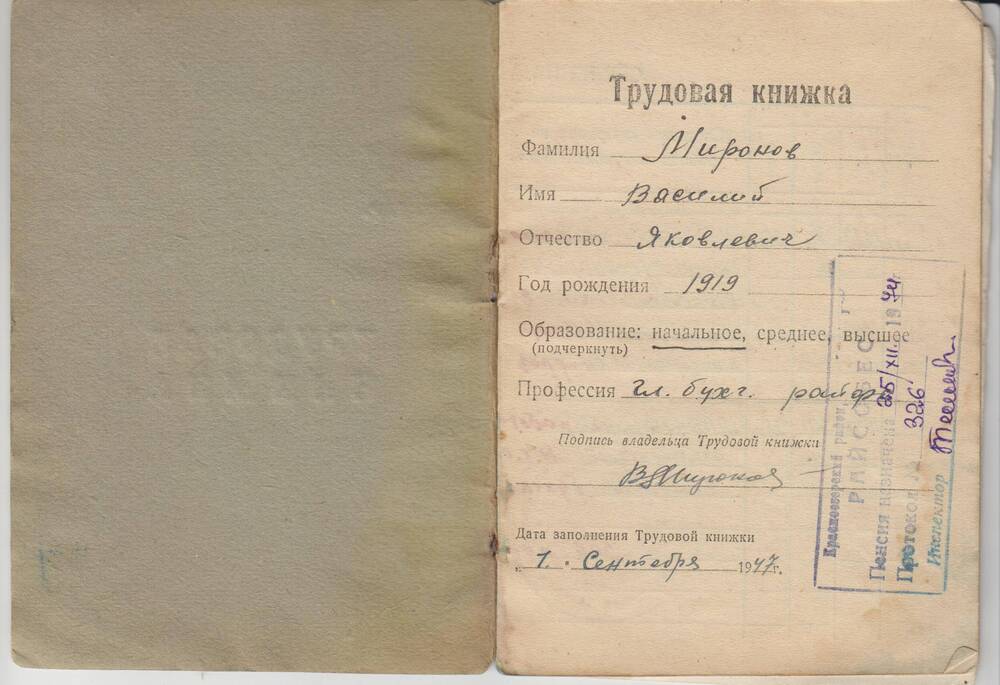 Трудовая книжка
Фамилия Миронов
Имя Василий
Отчество Яковлевич
Год рождения 1919
Образование: начальное, среднее, высшее
(подчеркнуть)
Профессия гл. бухг. райфо
Подпись владельца Трудовой книжки
Дата заполнения Трудовой книжки
„ 1. " Сентября 1947г.
Краснозерский район,
РАЙСОБЕС
Пенсия назначена 25/XII. 1974г.
Протокол № 326
Инспектор